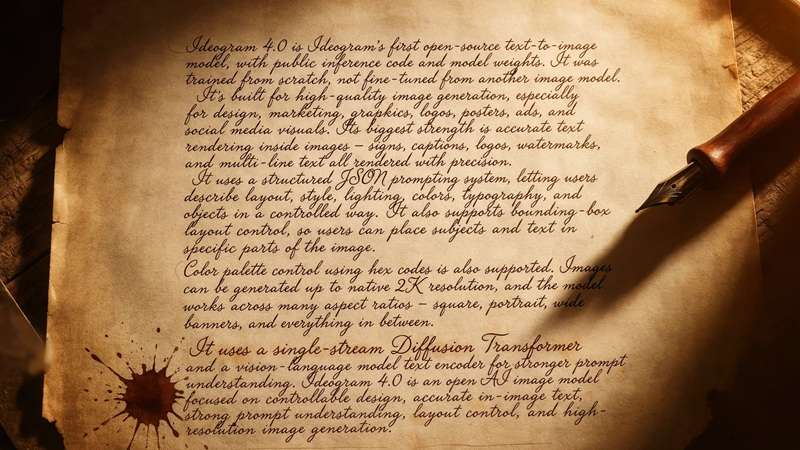 Ideogram 4.0 is Ideogram's first open-source text-to-image
model, with public inference code and model weights. It was
trained from scratch, not fine-tuned from another image model.
It's built for high-quality image generation, especially
for design, marketing, graphics, logos, posters, ads, and
social media visuals. Its biggest strength is accurate text
rendering inside images – signs, captions, logos, watermarks,
and multi-line text all rendered with precision.
It uses a structured JSON prompting system, letting users
describe layout, style, lighting, colors, typography, and
objects in a controlled way. It also supports bounding-box
layout control, so users can place subjects and text in
specific parts of the image.
Color palette control using hex codes is also supported. Images
can be generated up to native 2K resolution, and the model
works across many aspect ratios – square, portrait, wide
banners, and everything in between.
It uses a single-stream Diffusion Transformer
and a vision-language model text encoder for stronger prompt
understanding. Ideogram 4.0 is an open AI image model
focused on controllable design, accurate in-image text,
strong prompt understanding, layout control, and high-
resolution image generation.